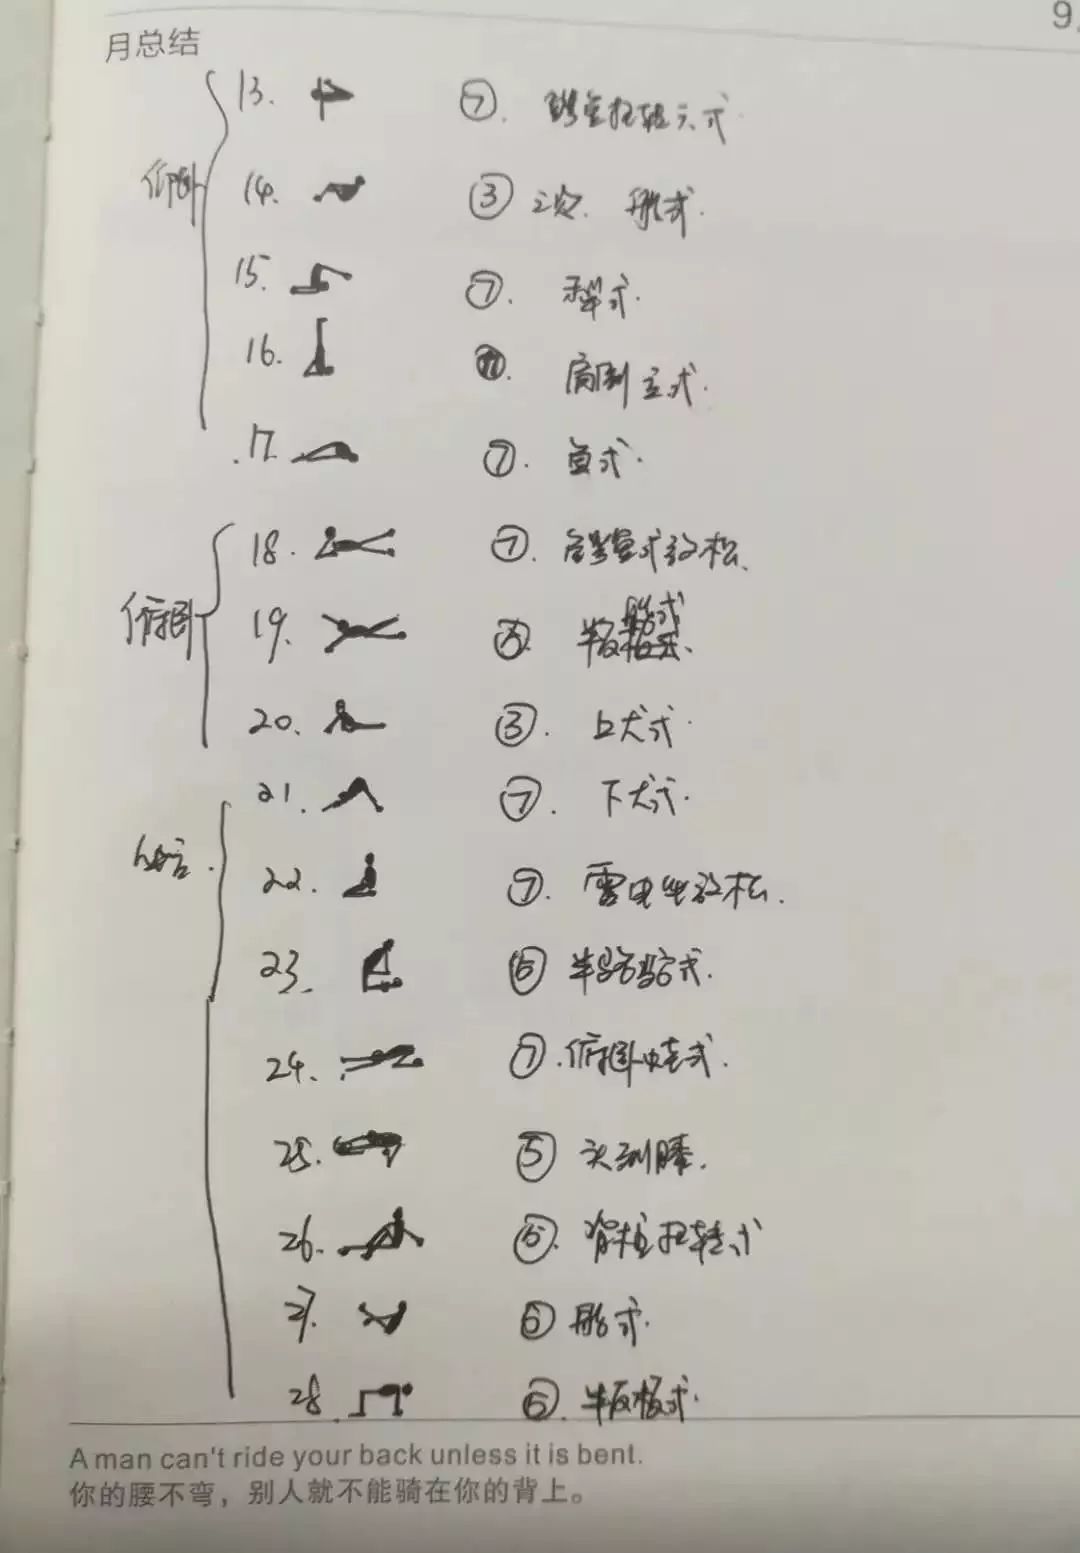 9.
月总结
仰卧
13. ⑦. 扭转式.
14. ③ 三次. 船式.
15. ⑦. 犁式.
16. 肩倒立式.
17. ⑦. 鱼式.
俯卧
18. ⑦. 鳄鱼式放松.
19. 半
20. ③. 上犬式.
21. ⑦. 下犬式.
22. ⑦. 雷电坐放松.
23. ⑤ 半骆驼式.
24. ⑦. 俯卧蝗式.
25. ⑤ 头到膝.
26. ⑤. 脊柱扭转式
27. ⑤ 船式.
28. ⑤. 半反板式.
A man can't ride your back unless it is bent.
你的腰不弯，别人就不能骑在你的背上。